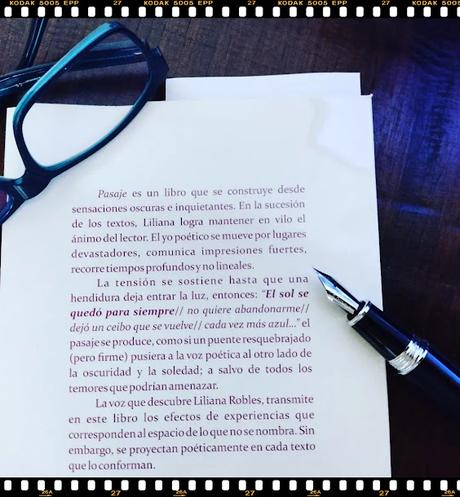 KODAK 5005 EPP KODAK 5005 EPP KODAK 5005 EPP KODAK
Pasaje es un libro que se construye desde
sensaciones oscuras e inquietantes. En la sucesión
de los textos, Liliana logra mantener en vilo el
ánimo del lector. El yo poético se mueve por lugares
devastadores, comunica impresiones fuertes,
recorre tiempos profundos y no lineales.
La tensión se sostiene hasta que una
hendidura deja entrar la luz, entonces: "El sol se
quedó para siempre// no quiere abandonarme//
dejó un ceibo que se vuelve// cada vez más azul..." el
pasaje se produce, como si un puente resquebrajado
(pero firme) pusiera a la voz poética al otro lado de
la oscuridad y la soledad; a salvo de todos los
temores que podrían amenazar.
La voz que descubre Liliana Robles, transmite
en este libro los efectos de experiencias que
corresponden al espacio de lo que no se nombra. Sin
embargo, se proyectan poéticamente en cada texto
que lo conforman.
27 26A 27 26A 27 26A 27